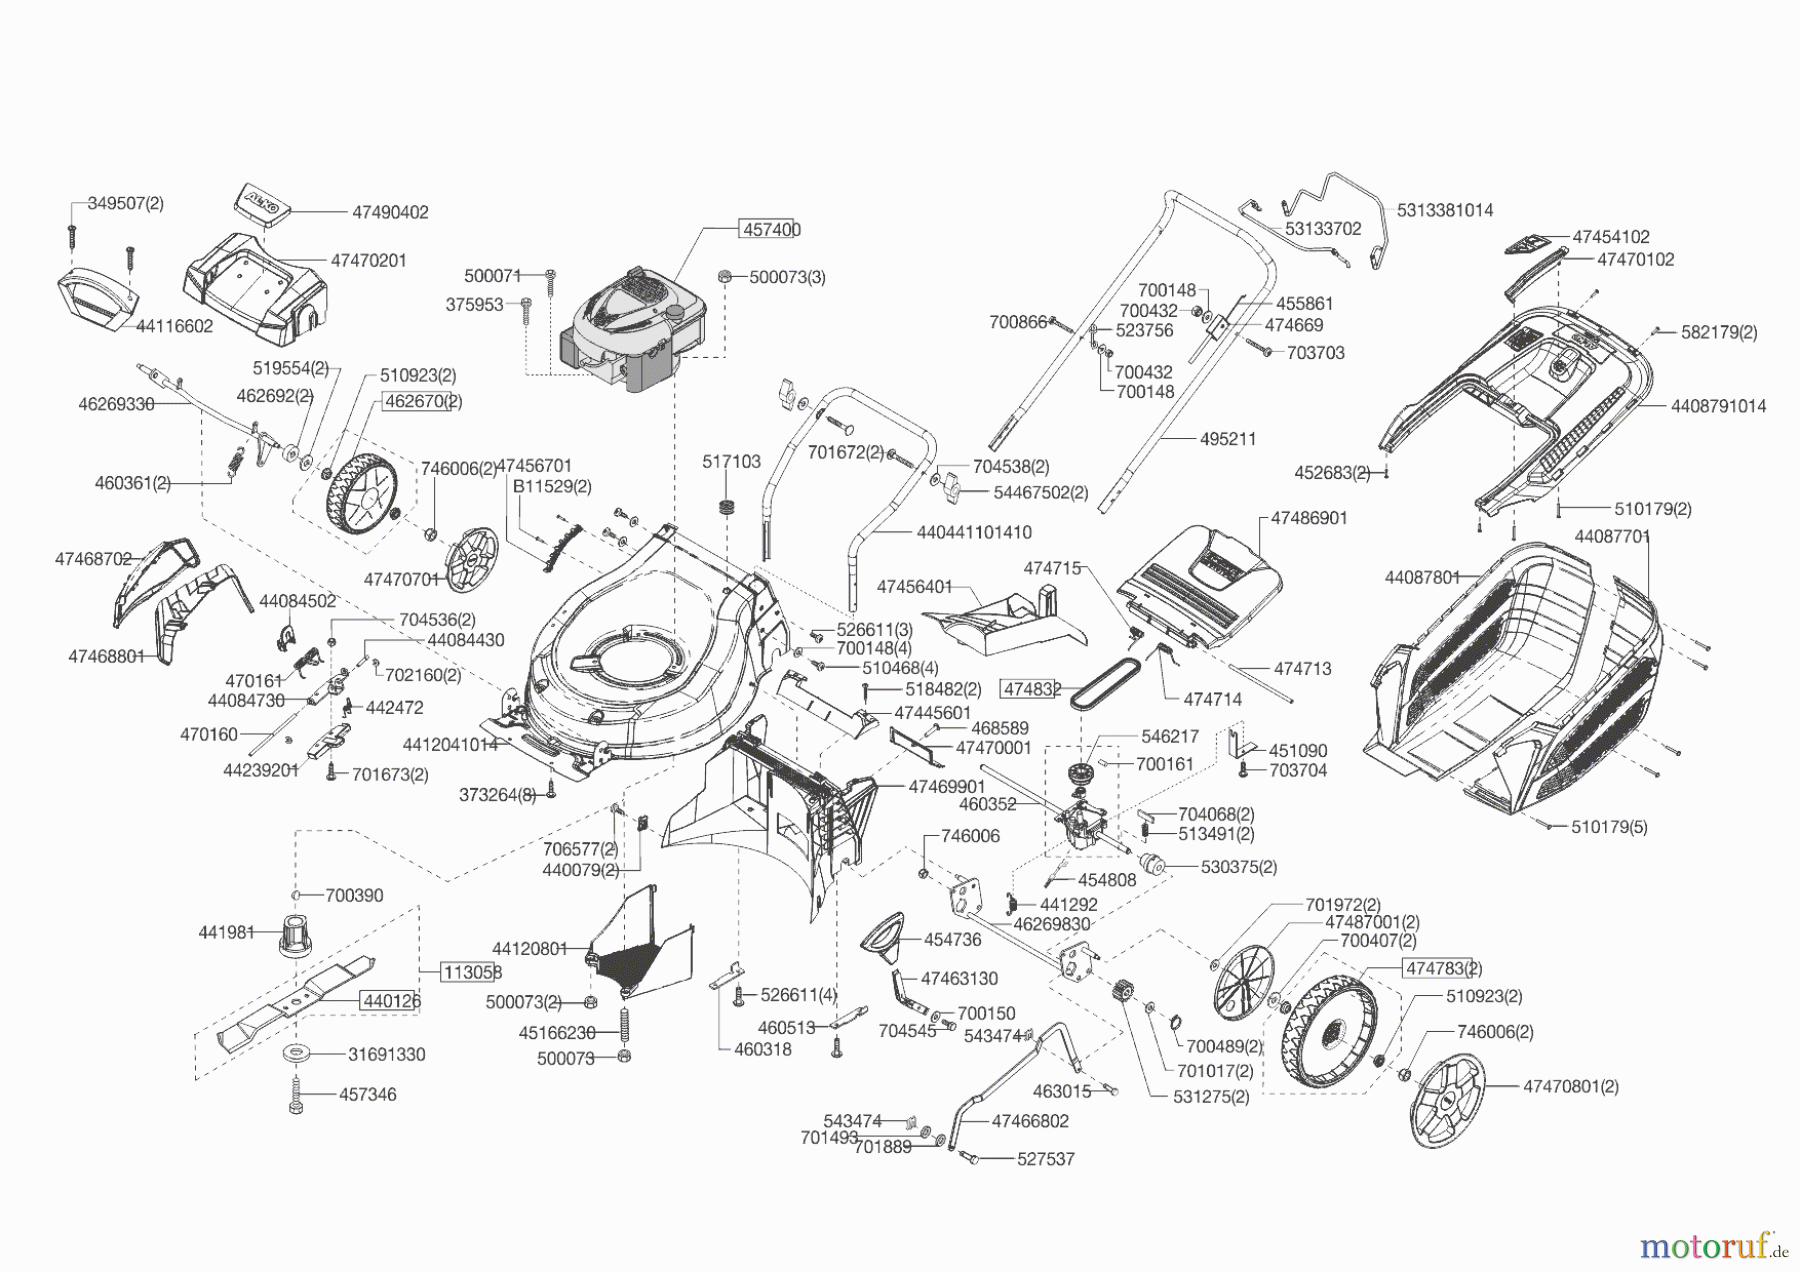 349507(2)
AL-KO
47490402
47470201
44116602
457400
500071
500073(3)
375953
5313381014
53133702
47454102
47470102
700148
700432
455861
474669
700866
523756
703703
700432
700148
582179(2)
4408791014
519554(2)
510923(2)
462692(2)
462670(2)
46269330
460361(2)
746006(2)
47456701
B11529(2)
517103
701672(2)
704538(2)
54467502(2)
495211
452683(2)
510179(2)
440441101410
47486901
44087701
44087801
47468702
47470701
44084502
704536(2)
44084430
47468801
470161
702160(2)
44084730
442472
470160
44239201
701673(2)
4412041014
373264(8)
474715
47456401
526611(3)
700148(4)
510468(4)
518482(2)
47445601
468589
47470001
474832
474714
474713
546217
700161
451090
703704
47469901
460352
704068(2)
513491(2)
746006
530375(2)
454808
441292
46269830
510179(5)
706577(2)
440079(2)
700390
441981
113058
440126
31691330
457346
44120801
500073(2)
45166230
500073
526611(4)
460318
460513
454736
47463130
700150
704545
543474
701972(2)
47487001(2)
700407(2)
474783(2)
510923(2)
746006(2)
700489(2)
701017(2)
531275(2)
463015
47470801(2)
543474
701493
701889
47466802
527537
motoruf.de